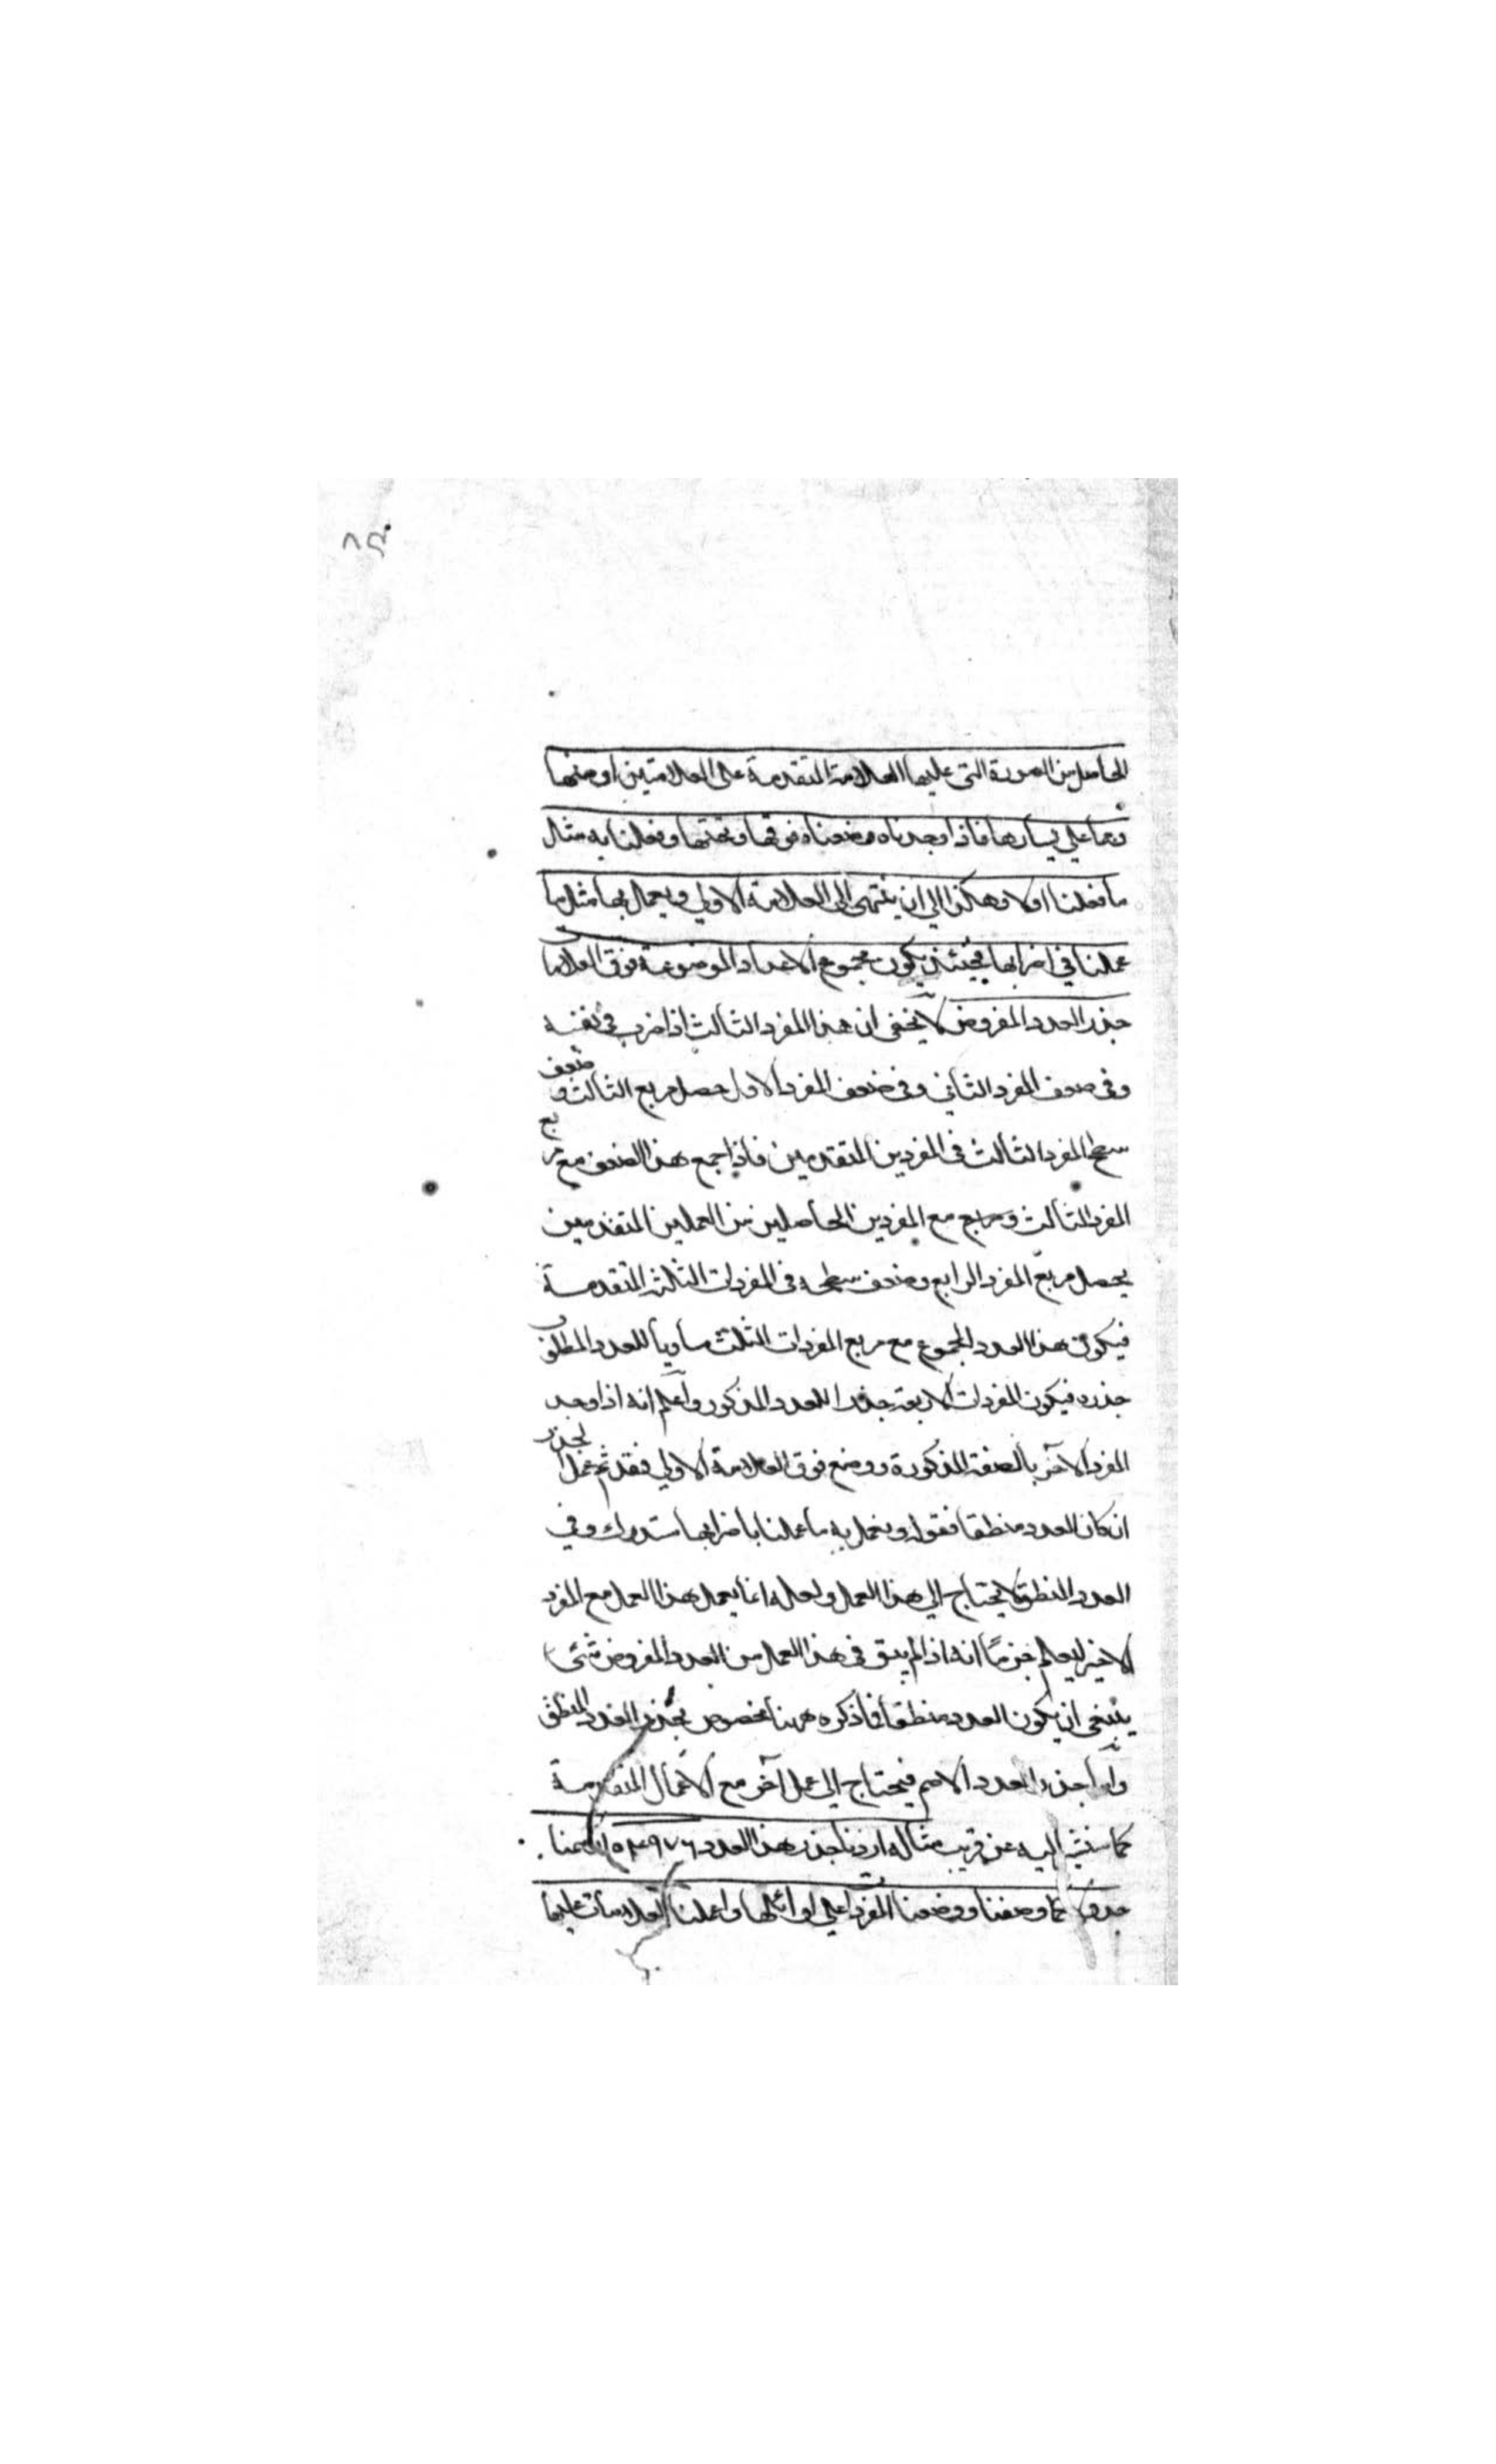 الحاصل من الصورة التى عليها العلامة المتقدمة على العلامتين او منها
ومما على يسارها فاذا وجدناه وضعناه فوقها وتحتها وفعلنا به مثل
ما فعلنا اولا وهكذا الى ان ينتهى الى العلامة الاولى ويعمل بها مثل ما
عملنا فى اضرابها فحينئذ يكون مجموع الاعداد الموضوعة فوق العلامات
جذر العدد المفروض لا يخفى ان هذا المفرد الثالث اذا ضرب فى نفسه
وفى ضعف المفرد الثانى وفى ضعف المفرد الاول حصل مربع الثالث و ضعف
سطح المفرد الثالث فى المفردين المتقدمين فاذا جمع هذا الضعف مع مربع
المفرد الثالث و مربع مع المفردين الحاصلين من العملين المتقدمين
يحصل مربع المفرد الرابع وضعف سطحه فى المفردات الثلثة المتقدمة
فيكون هذا العدد المجموع مع مربع المفردات الثلث مساويا للعدد المطلوب
جذره فيكون المفردات الاربعة جذر العدد المذكور واعلم انه اذا وجد
المفرد الآخر بالصفة المذكورة ووضع فوق العلامة الاولى فقد تم عمل الجذر
ان كان العدد منطقا فقوله ونعمل به ما عملنا باضرابها مستدرك وفى
العدد المنطق لا يحتاج الى هذا العمل ولعله انما يعمل هذا العمل مع المفرد
الاخير ليعلم جزما انه اذا لم يبق فى هذا العمل من العدد المفروض شئ
ينبغى ان يكون العدد منطقا فما ذكره ههنا مخصوص بجذر العدد المنطق
واما جذر العدد الاصم فيحتاج الى عمل آخر مع الاعمال المتقدمة
كما سنشير اليه عن قريب مثاله اردنا جذر هذا العدد
جدولا كما وصفنا ووضعنا المفرد على اوائلها واعملنا العلامات عليها